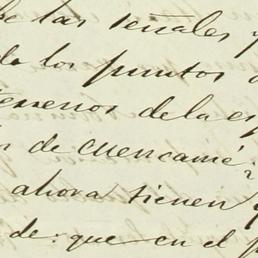 las señales y
los puntos
terrenos de la es
de cuencamé
ahora tienen
de: que en el p